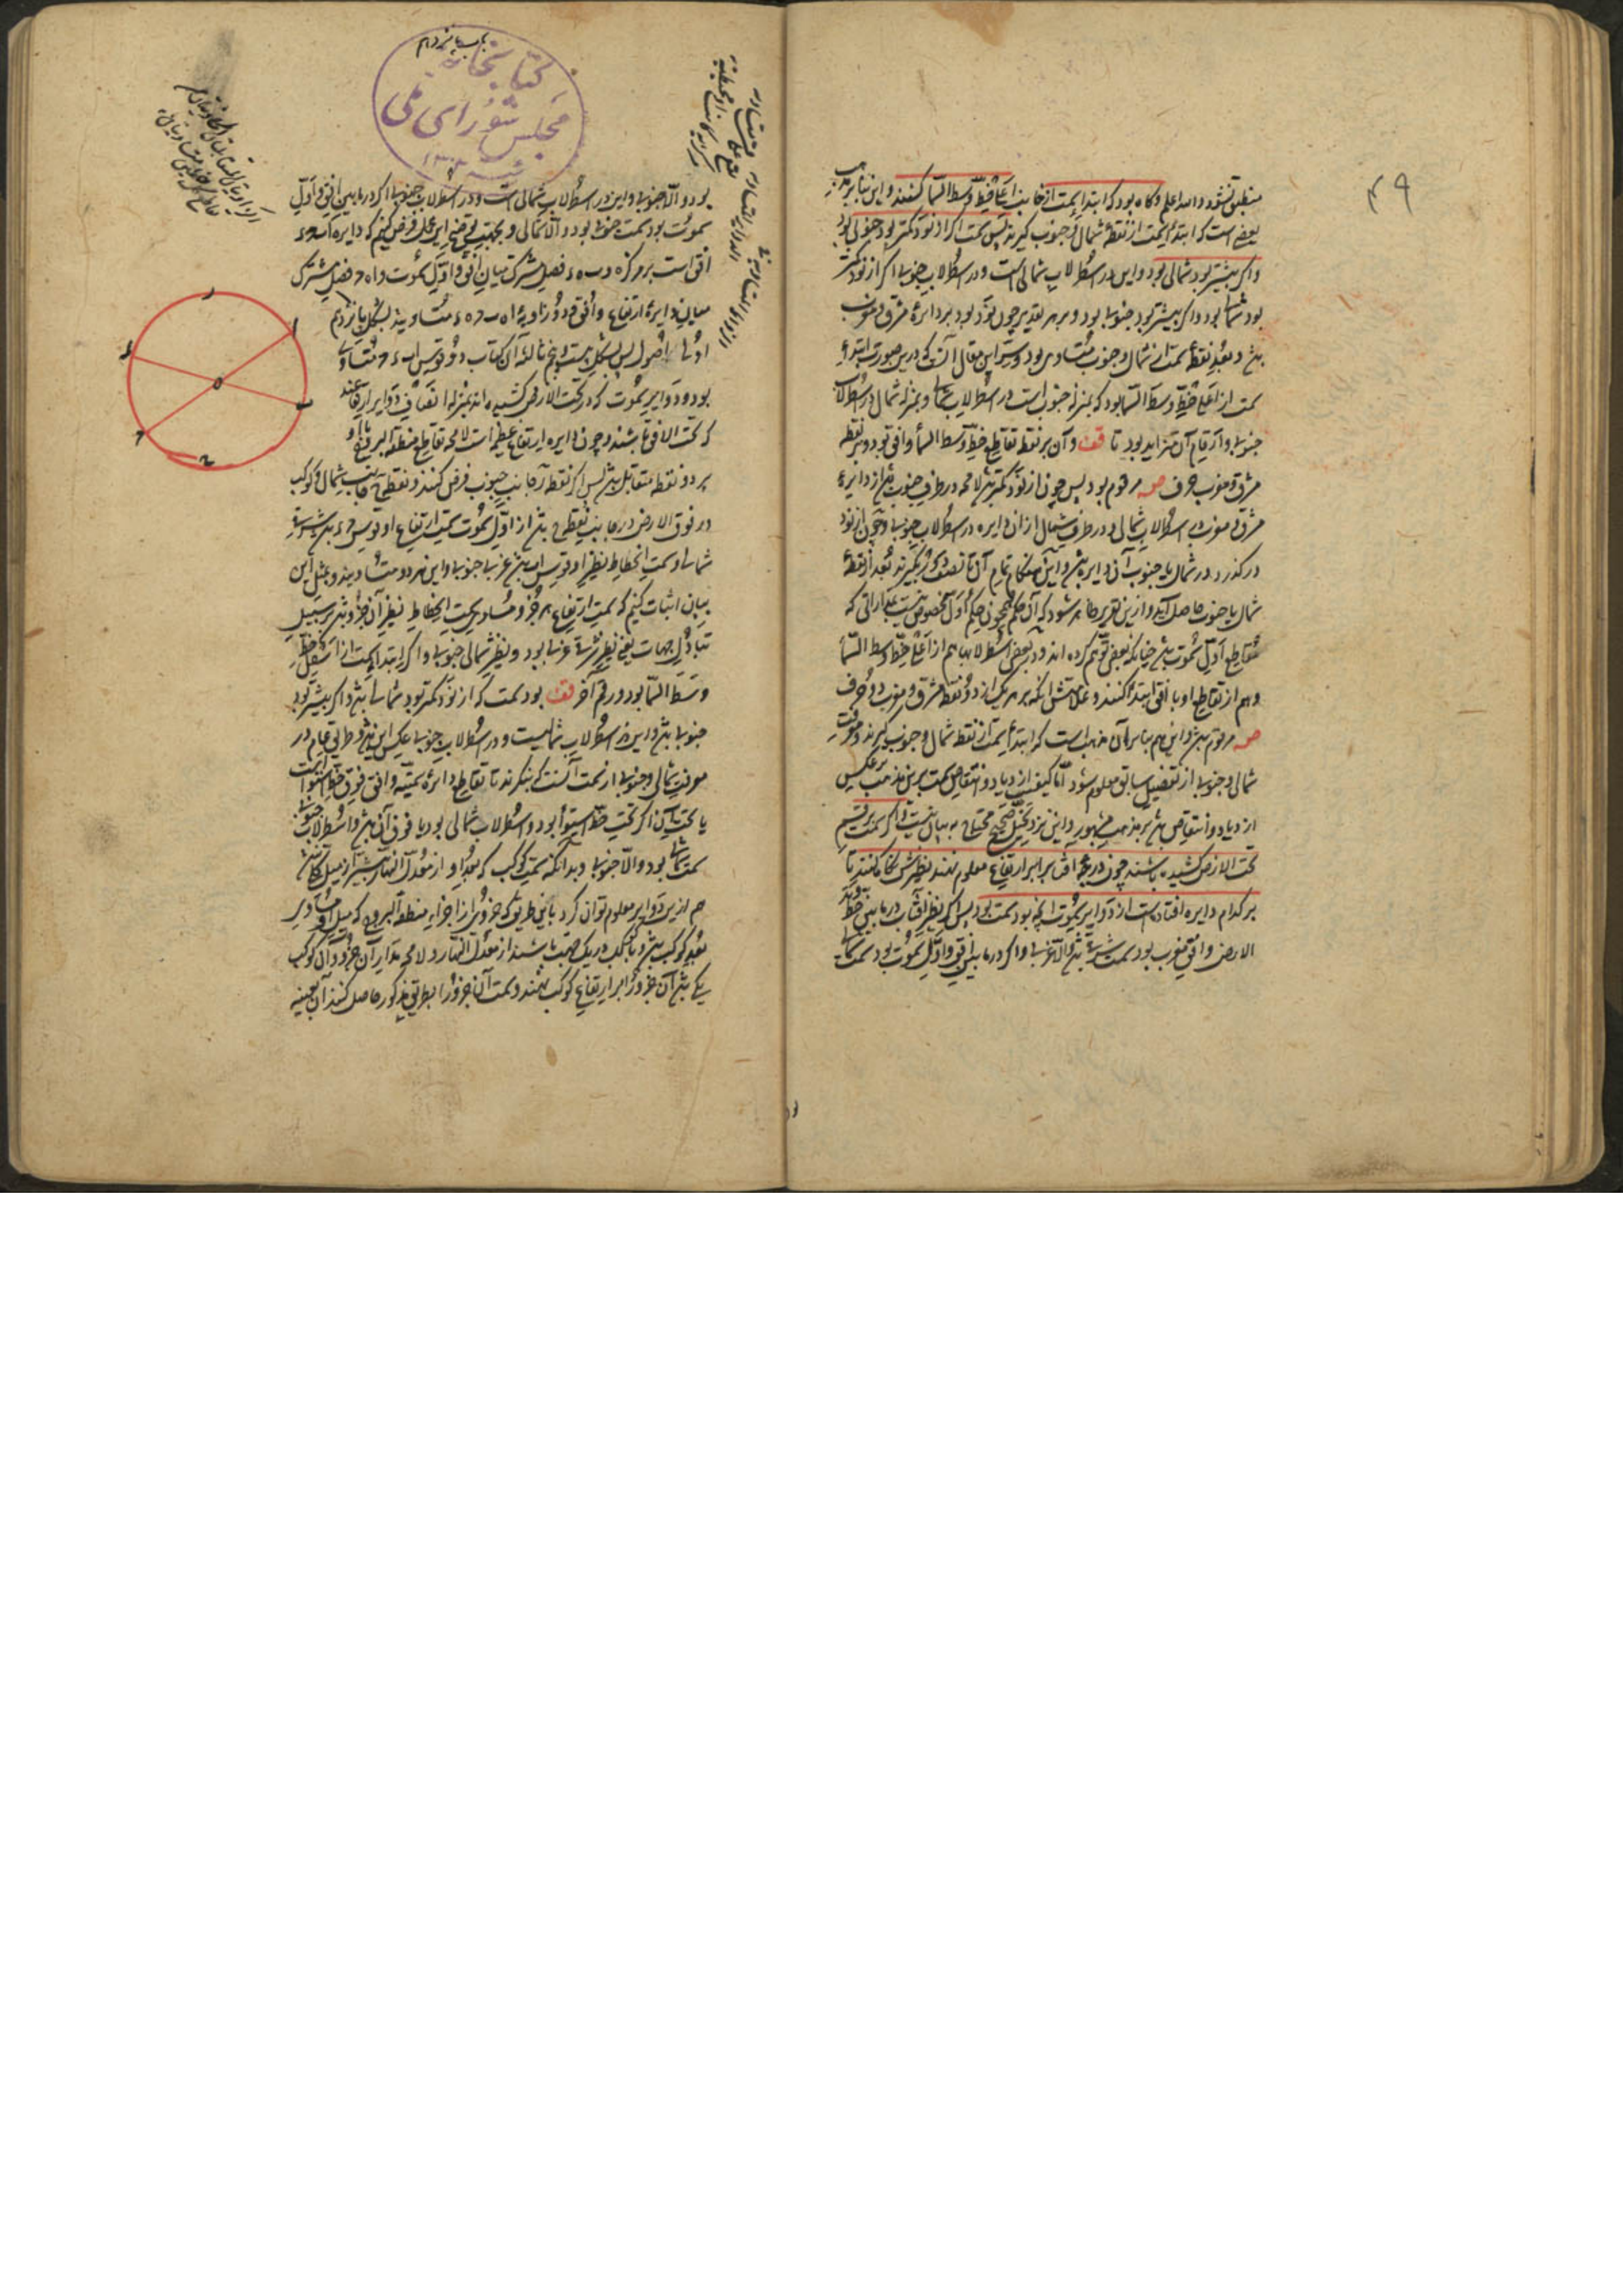 ۴۹
منطبق نشود والله اعلم وگاه بود که ابتداء سمت از جانب اعلی خط وسط السما کنند و این بنا بر مذهب
بعضی است که ابتداء سمت از نقطه شمال و جنوب گیرند پس سمت اگر از نود کمتر بود جنوبی بود
و اگر بیشتر بود شمالی بود و این در اسطرلاب شمالی است و در اسطرلاب جنوبی اگر از نود کمتر
بود شمالی بود و اگر بیشتر بود جنوبی بود و بر هر تقدیر چون نود بود بر دایره مشرق و مغرب
و بعد نقطه سمت از شمال و جنوب متساوی بود و سر این مقال آنست که درین صورت ابتداء
سمت از اعلی خط وسط السما بود که بمنزله جنوب است در اسطرلاب شمالی و بمنزله شمال در اسطرلاب
جنوبی و ارقام آن متزاید بود تا قف و آن بر نقطه تقاطع خط وسط السما و افق بود و بر نقطه
مشرق و مغرب حرف ص مرقوم بود پس چون از نود کمتر باشد لامحه در طرف جنوب باشد از دایره
مشرق و مغرب در اسطرلاب شمالی و در طرف شمال از آن دایره در اسطرلاب جنوبی و چون از نود
در گذرد در شمال یا جنوب آن دایره باشد و این هنگام تمام آن تا نصف دور بگیرند بعد از نقطه
شمال یا جنوب حاصل آید و ازین تقریر ظاهر شود که آن حکم همچون حکم اول مخصوص نیست بمداراتی که
مقاطع اول سموت باشد چنانکه بعضی توهم کرده اند و در بعضی اسطرلابها هم از اعلی خط وسط السما
و هم از تقاطع او با افق ابتدا کنند و علامتش آنکه بر هر یک از دو نقطه مشرق و مغرب دو حرف
ص مرقوم باشد و این هم بنا بر آن مذهب است که ابتداء سمت از نقطه شمال و جنوب گیرند و معرفت
شمالی و جنوبی از تفصیل سابق معلوم شود اما کیفیت ازدیاد و انتقاص سمت برین مذهب بر عکس
ازدیاد و انتقاص باشد بر مذهب مشهور و این نزد تخیل صحیح محتاج به بیان نیست و اگر سمت بر قسم
تحت الارض کشیده باشند چون درجه آفتاب بر ارتفاع معلوم نهند نظیرش نگاه کنند تا
بر کدام دایره افتاده است از دوایر سموت آنچه بود سمت بود پس اگر نظیر آفتاب در ما بین خط وتد
الارض و افق مغرب بود سمت شرقی باشد و الا غربی و اگر در ما بین افق و اول سموت بود سمت شمالی
باب پانزدهم
کتابخانه
مجلس شورای ملی
بود و الا جنوبی و این در اسطرلاب شمالی است و در اسطرلاب جنوبی اگر در ما بین افق و اول
سموت بود سمت جنوبی بود و الا شمالی و بجهت توضیح این عمل فرض کنیم که دایره
افق است بر مرکز ه و ب ه ء فصل مشترک میان افق و اول سموت و ا ه ح فصل مشترک
میان دایره ارتفاع و افق و دو زاویه ا ه ب ح ه ء متساویند بشکل پانزدهم
اولی اصول پس بشکل بیست و پنجم ثالثه آن کتاب دو قوس ا ب ء ح متساوی
بود و دوایر سموت که در تحت الارض کشیده اند بمنزله انصاف دوایر ارتفاعند
که تحت الافق باشند و چون دایره ارتفاع عظیمه است لامحه تقاطع منطقة البروج با او
بر دو نقطه متقابل باشد پس اگر نقطه ر جانب جنوب فرض کنند و نقطه ح جانب شمال و کوکب
در فوق الارض در جانب نقطه ح باشد از اول سموت سمت ارتفاع او قوس ح ء باشد شرقی
شمالی و سمت انحطاط نظیر او قوس ا ب باشد غربی جنوبی و این هر دو متساویند و بمثل این
بیان اثبات کنیم که سمت ارتفاع هر جزو مساوی سمت انحطاط نظیر آن جزو باشد بر سبیل
تبادل جهات یعنی نظیر شرقی غربی بود و نظیر شمالی جنوبی و اگر ابتداء سمت از اسفل خط
وسط السما بود و رقم آخر قف بود سمت که از نود کمتر بود شمالی باشد و اگر بیشتر بود
جنوبی باشد و این در اسطرلاب شمالیست و در اسطرلاب جنوبی عکس این باشد و طریق عام در
معرفت شمالی و جنوبی از سمت آنست که بنگرند تا تقاطع دایره سمتیه و افق فوق خط استواست
یا تحت آن اگر تحت خط استوا بود و اسطرلاب شمالی بود یا فوق آن باشد و اسطرلاب جنوبی
سمت شمالی بود و الا جنوبی و بدانکه سمت کوکب که بعد او از معدل النهار بیشتر از میل کلی نباشد
هم ازین دوایر معلوم توان کرد باین طریق که جزوی از اجزاء منطقة البروج که میل او مساوی
بعد کوکب باشد و با کوکب در یک جهت باشند از معدل النهار و لامحه مدار آن جزو و آن کوکب
یکی باشد آن جزو را بر ارتفاع کوکب نهند و سمت آن جزو را بطریق مذکور حاصل کنند آن بعینه